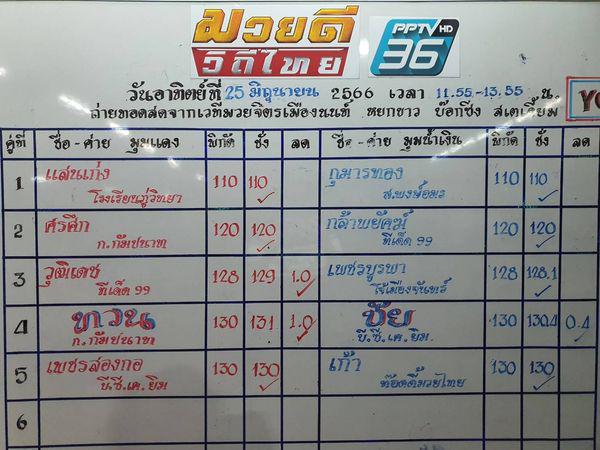 มวยดี
วิถีไทย
PPTV HD
36
วันอาทิตย์ที่ 25 มิถุนายน 2566 เวลา 11.55-13.55 น.
ถ่ายทอดสดจากเวทีมวยจิตรเมืองนนท์ หยกขาว บ๊อกซิ่ง สเตเดี้ยม
คู่ที่ ชื่อ-ค่าย มุมแดง พิกัด ชั่ง ลด ชื่อ-ค่าย มุมน้ำเงิน พิกัด ชั่ง ลด
1 แสนเก่ง 110 110 กุมารทอง 110 110
โรงเรียนภู่วิทยา ส.พงษ์อมร
2 ศรศึก 120 120 กล้าพยัคฆ์ 120 120
ก.กัมปนาท ทีเด็ด 99
3 วุฒิเดช 128 129 1.0 เพชรบูรพา 128 128.1
ทีเด็ด 99 โจ้เมืองจันทร์
4 ทวน 130 131 1.0 ชัย 130 130.4 0.4
ก.กัมปนาท บี.ซี.เค.ยิม
5 เพชรสองกอ 130 130 เก้า 130 130
บี.ซี.เค.ยิม ท๊อดดี้มวยไทย
6